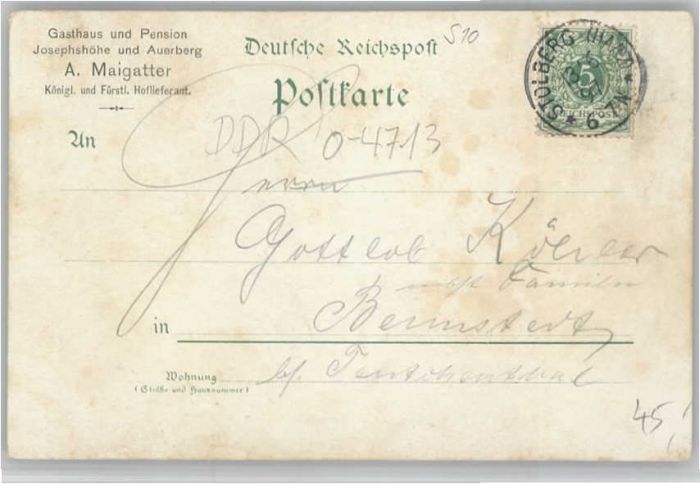 Gasthaus und Pension
Josephshöhe und Auerberg
A. Maigatter
Königl. und Fürstl. Hoflieferant.
Deutsche Reichspost
510
Postkarte
STOLBERG (HARZ)
6-7N
5
REICHSPOST
DDR 0-4713
An
Herrn
Gottlob
nebst Familie
in Bennstedt
Wohnung bf. Teutschenthal
(Straße und Hausnummer)
45,-